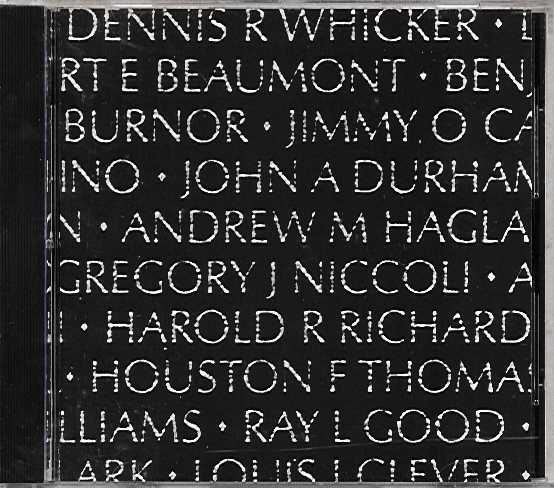 DENNIS R WHICKER •
RT E BEAUMONT • BEN
BURNOR • JIMMY O CA
INO • JOHN A DURHAM
N • ANDREW M HAGLA
GREGORY J NICCOLI • A
• HAROLD R RICHARD
• HOUSTON F THOMAS
LLIAMS • RAY L GOOD •
LARK • LOUIS J CLEVER •